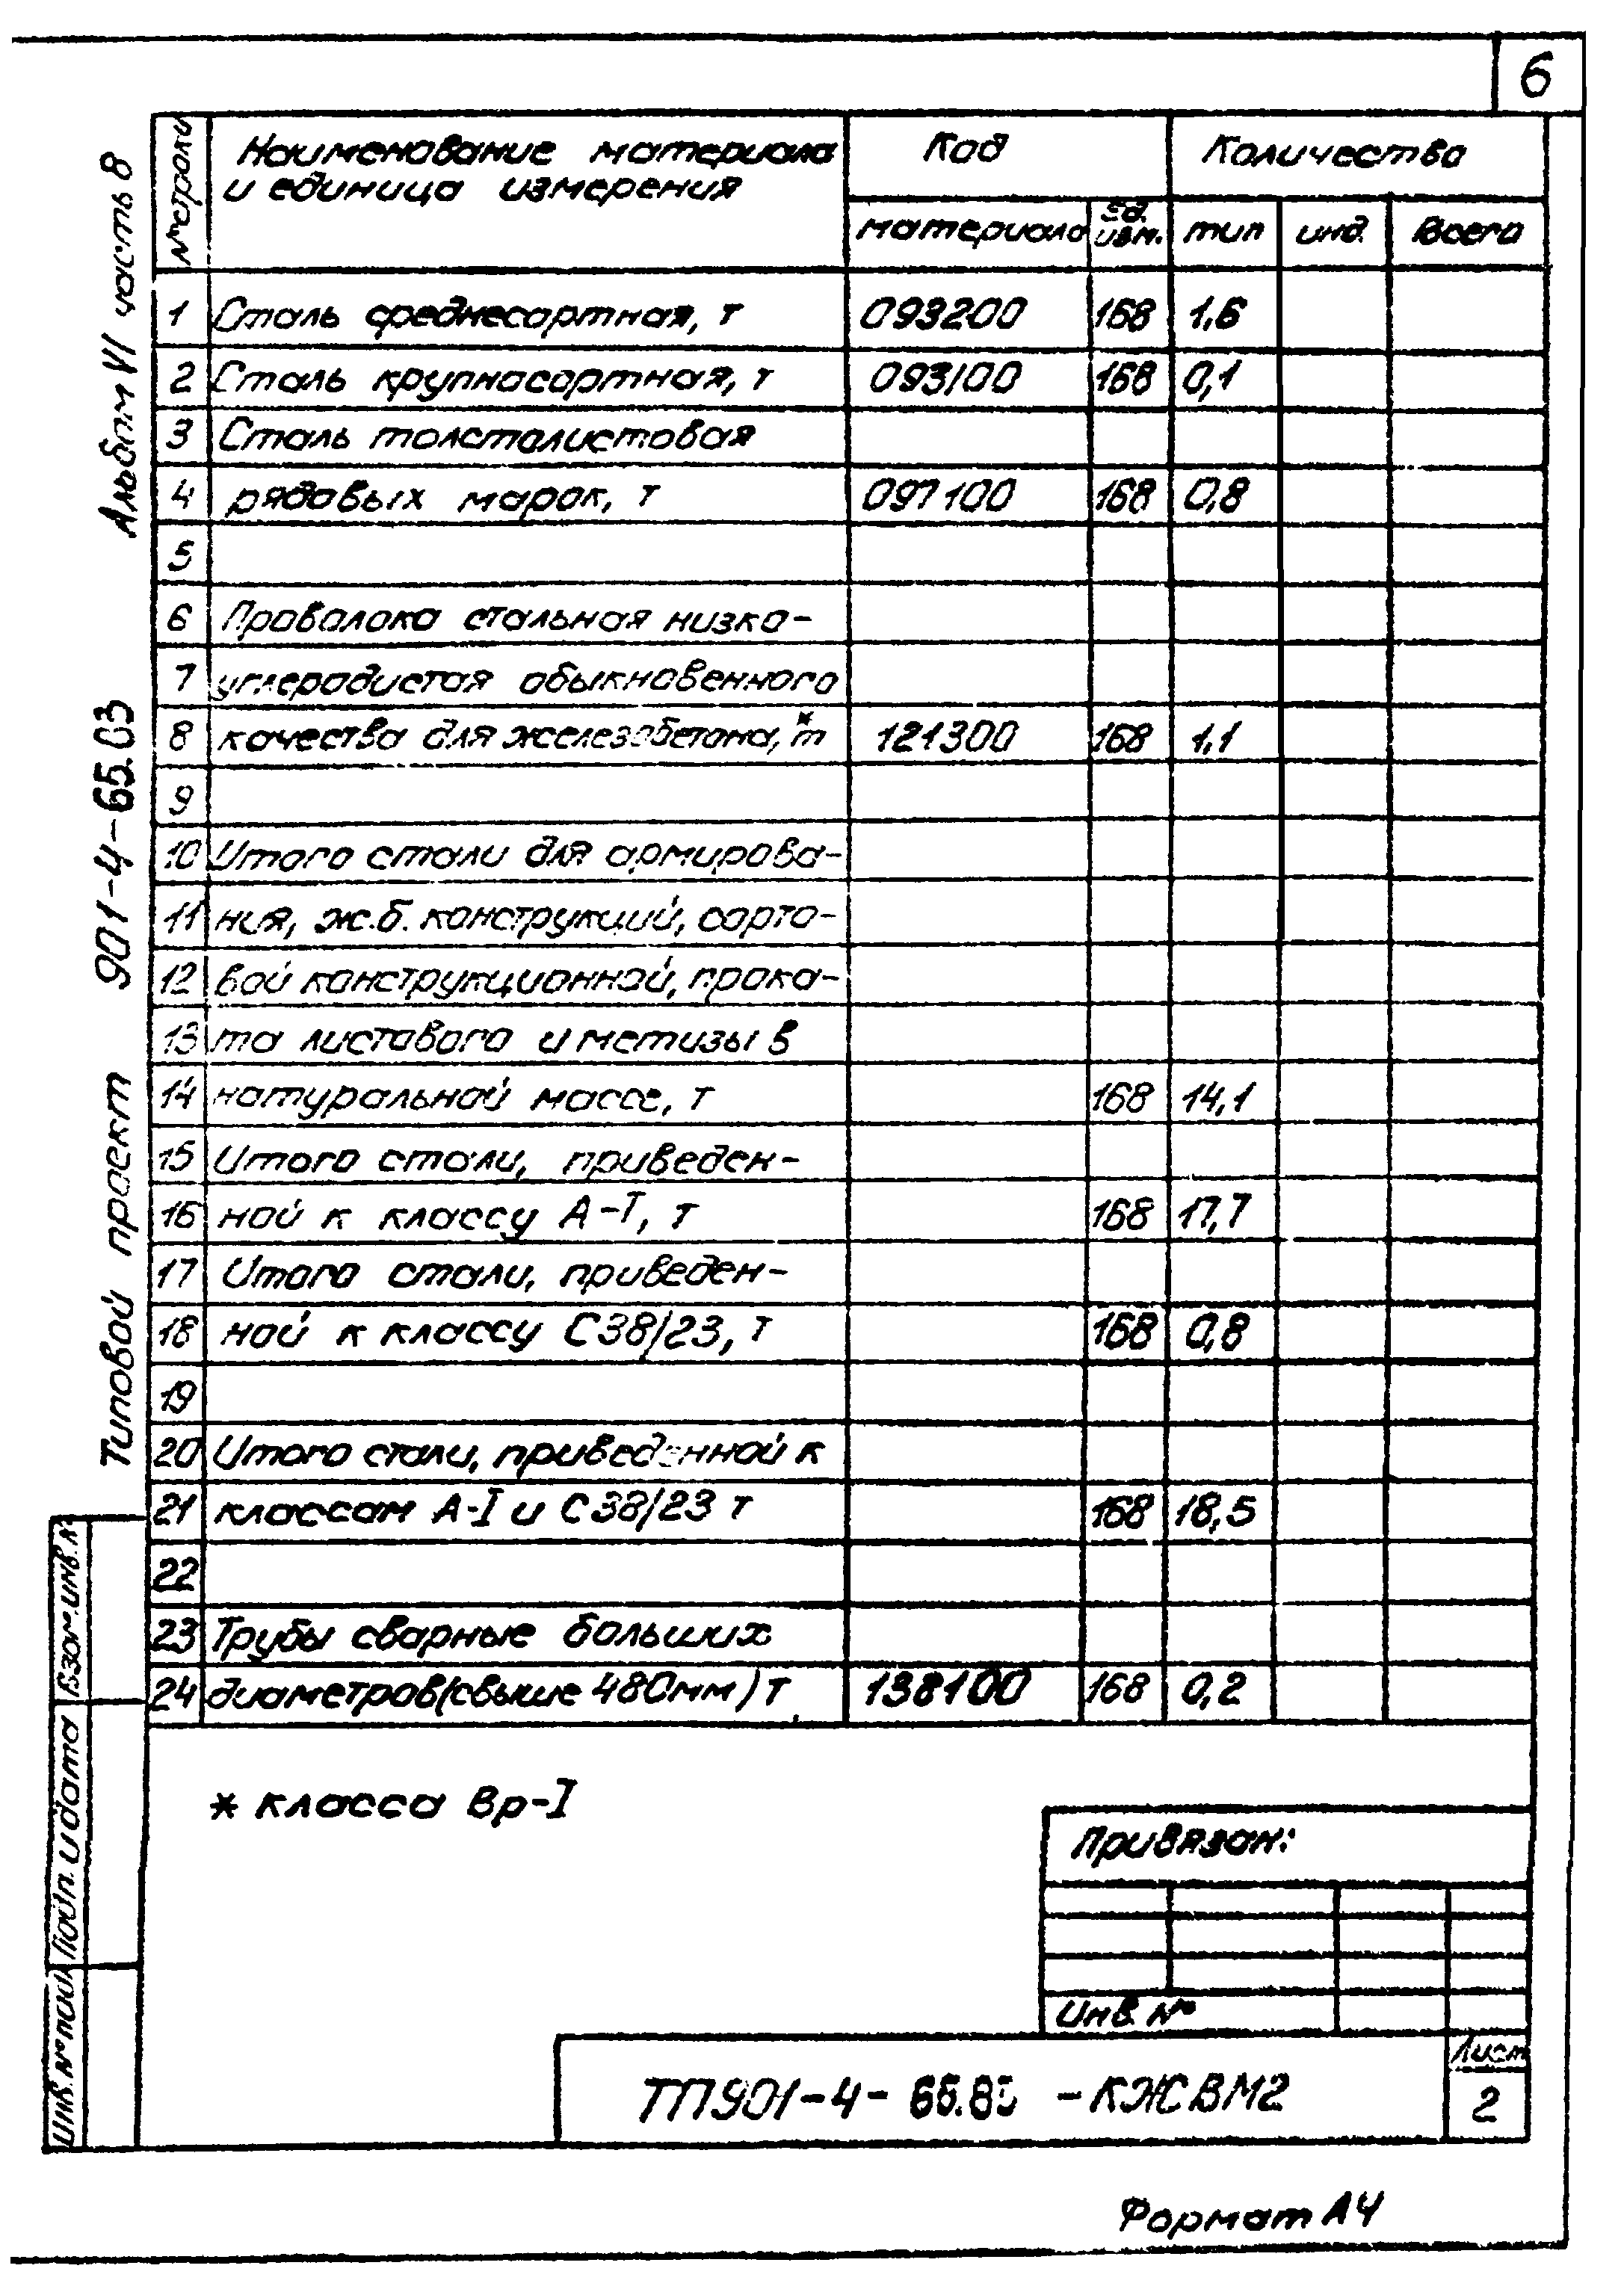 6
Альбом VI часть 8
901-4-65.83
Типовой проект
№ строки
Наименование материала
и единица измерения
Код
Количество
материала
Ед. изм.
тип
инд.
Всего
1 Сталь среднесортная, т 093200 168 1,6
2 Сталь крупносортная, т 093100 168 0,1
3 Сталь толстолистовая
4 рядовых марок, т 097100 168 0,8
5
6 Проволока стальная низко-
7 углеродистая обыкновенного
8 качества для железобетона,* т 121300 168 1,1
9
10 Итого стали для армирова-
11 ния, ж.б. конструкций, сорто-
12 вой конструкционной, прока-
13 та листового и метизы в
14 натуральной массе, т 168 14,1
15 Итого стали, приведен-
16 ной к классу А-I, т 168 17,7
17 Итого стали, приведен-
18 ной к классу С38/23, т 168 0,8
19
20 Итого стали, приведенной к
21 классам А-I и С38/23 т 168 18,5
22
23 Трубы сварные больших
24 диаметров (свыше 480мм) т 138100 168 0,2
* класса Вр-I
Взам. инв. №
Подп. и дата
Инв. № подл
Привязан:
Инв. №
ТП901-4-65.83 -КЖСВМ2
Лист
2
Формат А4